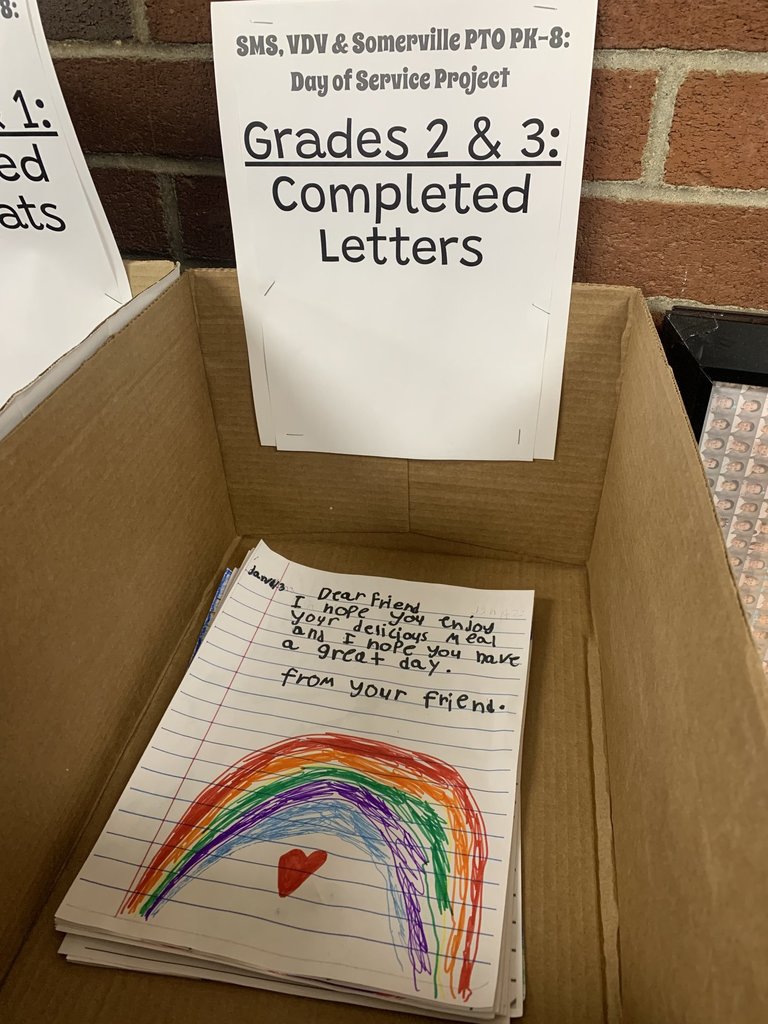 8:
1:
ed
ats
SMS, VDV & Somerville PTO PK-8:
Day of Service Project
Grades 2 & 3:
Completed
Letters
Dear friend
I hope you enjoy
your delicious meal
and I hope you have
a great day.
from your friend.